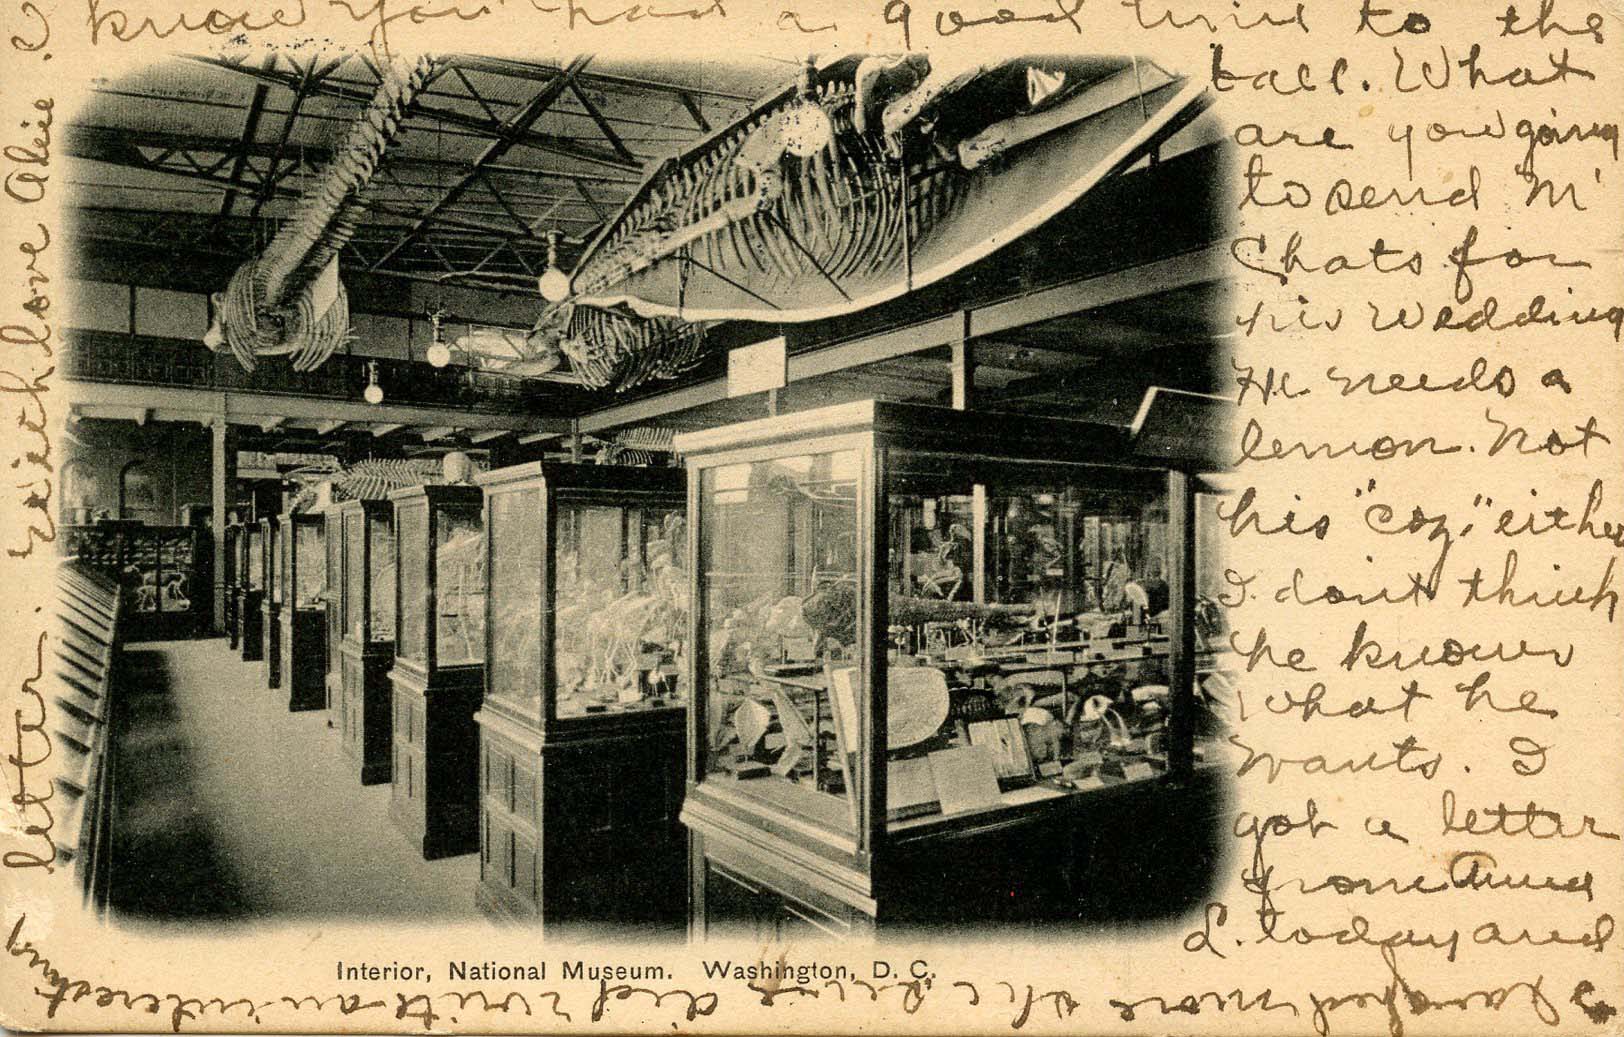 I know you had a good time to the
ball. What
are you going
to send Mr
Chats for
his wedding
He needs a
lemon. Not
his "cozy" either
I don't think
he knows
what he
wants. I
got a letter
from Anna
L. today and
I laughed more she sure did write an interesting
letter. With love Alice.
Interior, National Museum. Washington, D. C.